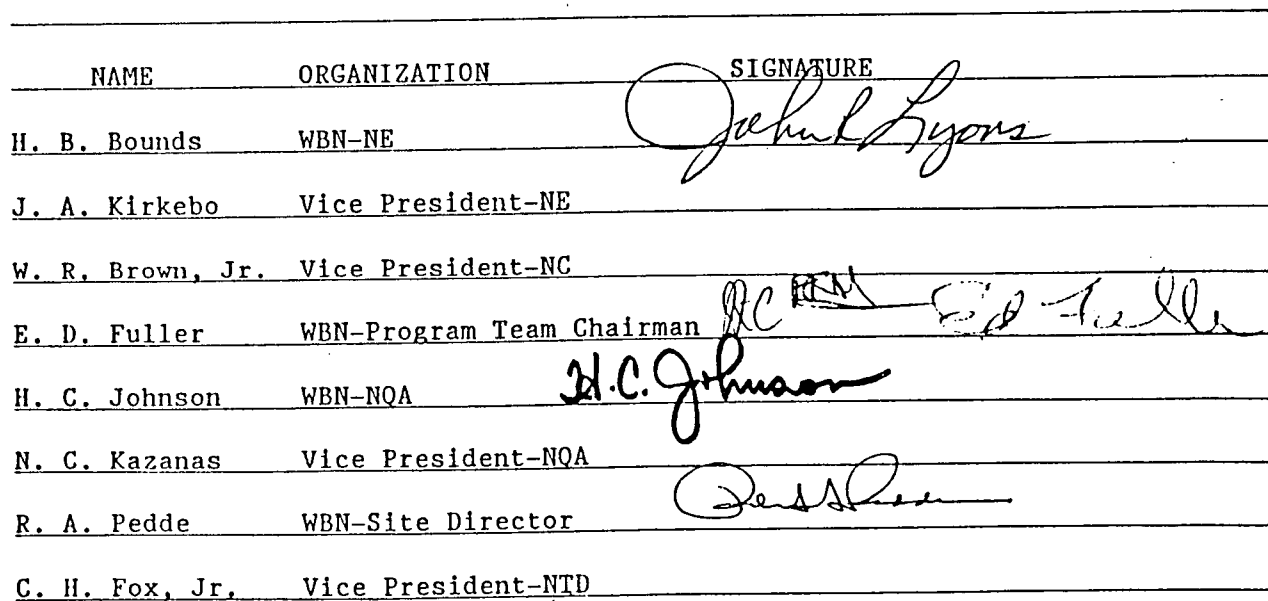 NAME ORGANIZATION SIGNATURE
H. B. Bounds WBN-NE John R Lyons
J. A. Kirkebo Vice President-NE
W. R. Brown, Jr. Vice President-NC
E. D. Fuller WBN-Program Team Chairman Ed Fuller
H. C. Johnson WBN-NQA H.C. Johnson
N. C. Kazanas Vice President-NQA
R. A. Pedde WBN-Site Director
C. H. Fox, Jr. Vice President-NTD